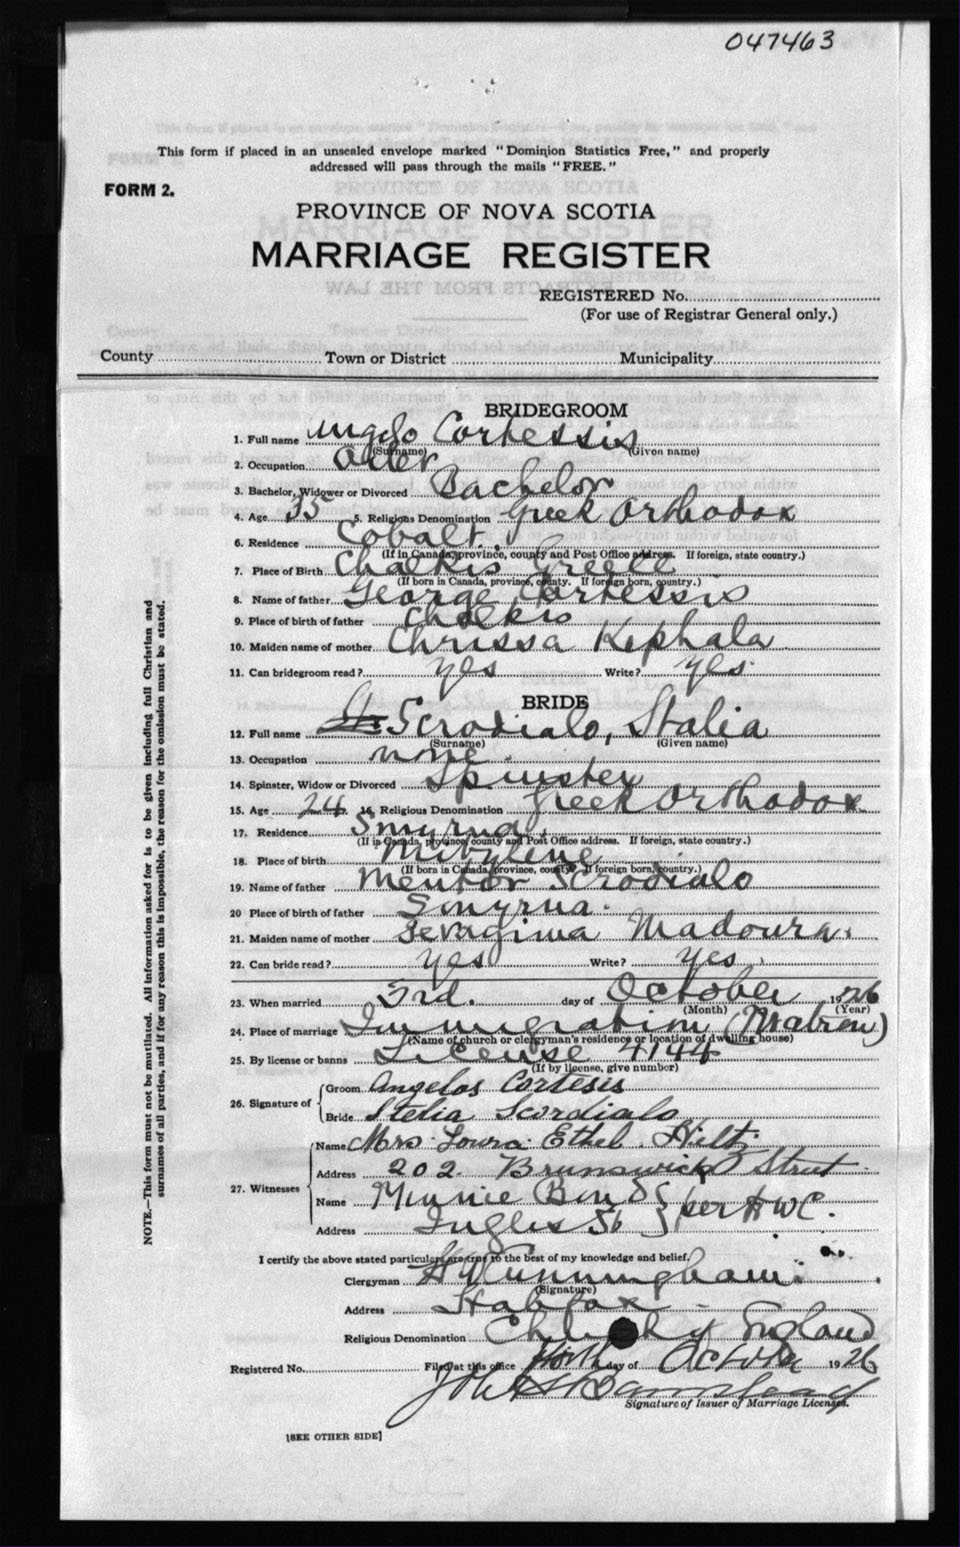 047463
This form if placed in an unsealed envelope marked "Dominion Statistics Free," and properly
addressed will pass through the mails "FREE."
FORM 2.
PROVINCE OF NOVA SCOTIA
MARRIAGE REGISTER
REGISTERED No.
(For use of Registrar General only.)
County Town or District Municipality
BRIDEGROOM
1. Full name Angelo Cortessis
(Surname) (Given name)
2. Occupation
3. Bachelor, Widower or Divorced Bachelor
4. Age 35 5. Religious Denomination Greek Orthodox
6. Residence Cobalt
(If in Canada, province, county and Post Office address. If foreign, state country.)
7. Place of Birth Chalkis Greece
(If born in Canada, province, county. If foreign born, country.)
8. Name of father George Cortessis
9. Place of birth of father Chalkis
10. Maiden name of mother Chrissa Kephala
11. Can bridegroom read? yes Write? yes
BRIDE
12. Full name Scrodialo, Stalia
(Surname) (Given name)
13. Occupation none
14. Spinster, Widow or Divorced Spinster
15. Age 24 16. Religious Denomination Greek Orthodox
17. Residence Smyrna
(If in Canada, province, county and Post Office address. If foreign, state country.)
18. Place of birth Mitylene
(If born in Canada, province, county. If foreign born, country.)
19. Name of father Mentor Scrodialo
20 Place of birth of father Smyrna
21. Maiden name of mother Madoura
22. Can bride read? yes Write? yes
23. When married 3rd. day of October 1926
(Month) (Year)
24. Place of marriage Immigration (Matron)
(Name of church or clergyman's residence or location of dwelling house)
25. By license or banns License 4144
(If by license, give number)
26. Signature of
Groom Angelos Cortesis
Bride Stelia Scordialo
27. Witnesses
Name Mrs. Loura Ethel Hiltz
Address 202 Brunswick Street
Name Minnie Bond } per H W C.
Address Inglis St
I certify the above stated particulars are true to the best of my knowledge and belief.
Clergyman Cunningham
(Signature)
Address Halifax
Religious Denomination Church of England
Registered No. Filed at this office day of October 1926
Signature of Issuer of Marriage Licenses.
[SEE OTHER SIDE]
NOTE.—This form must not be mutilated. All information asked for is to be given including full Christian and
surnames of all parties, and if for any reason this is impossible, the reason for the omission must be stated.